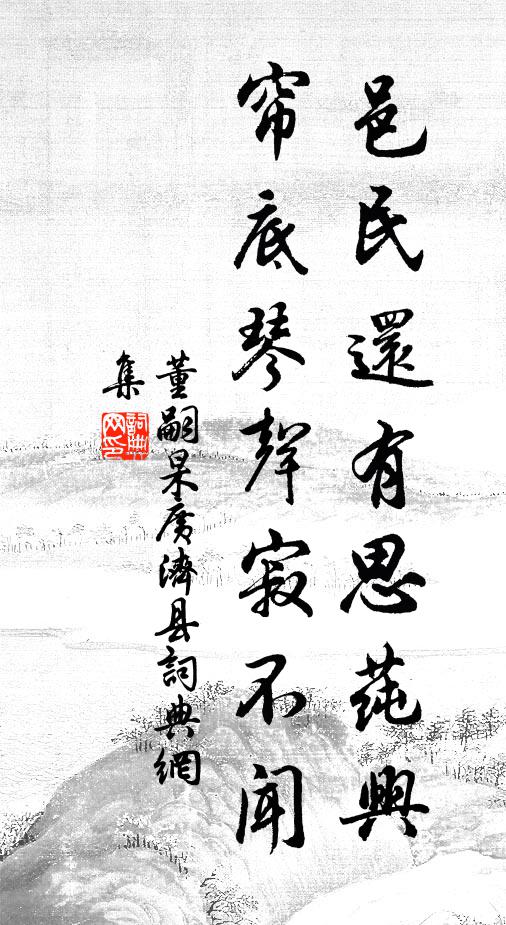 邑民還有思莼興
帘底琴聲寂不聞
董嗣杲廣濟县詞典網
集
詞典网印